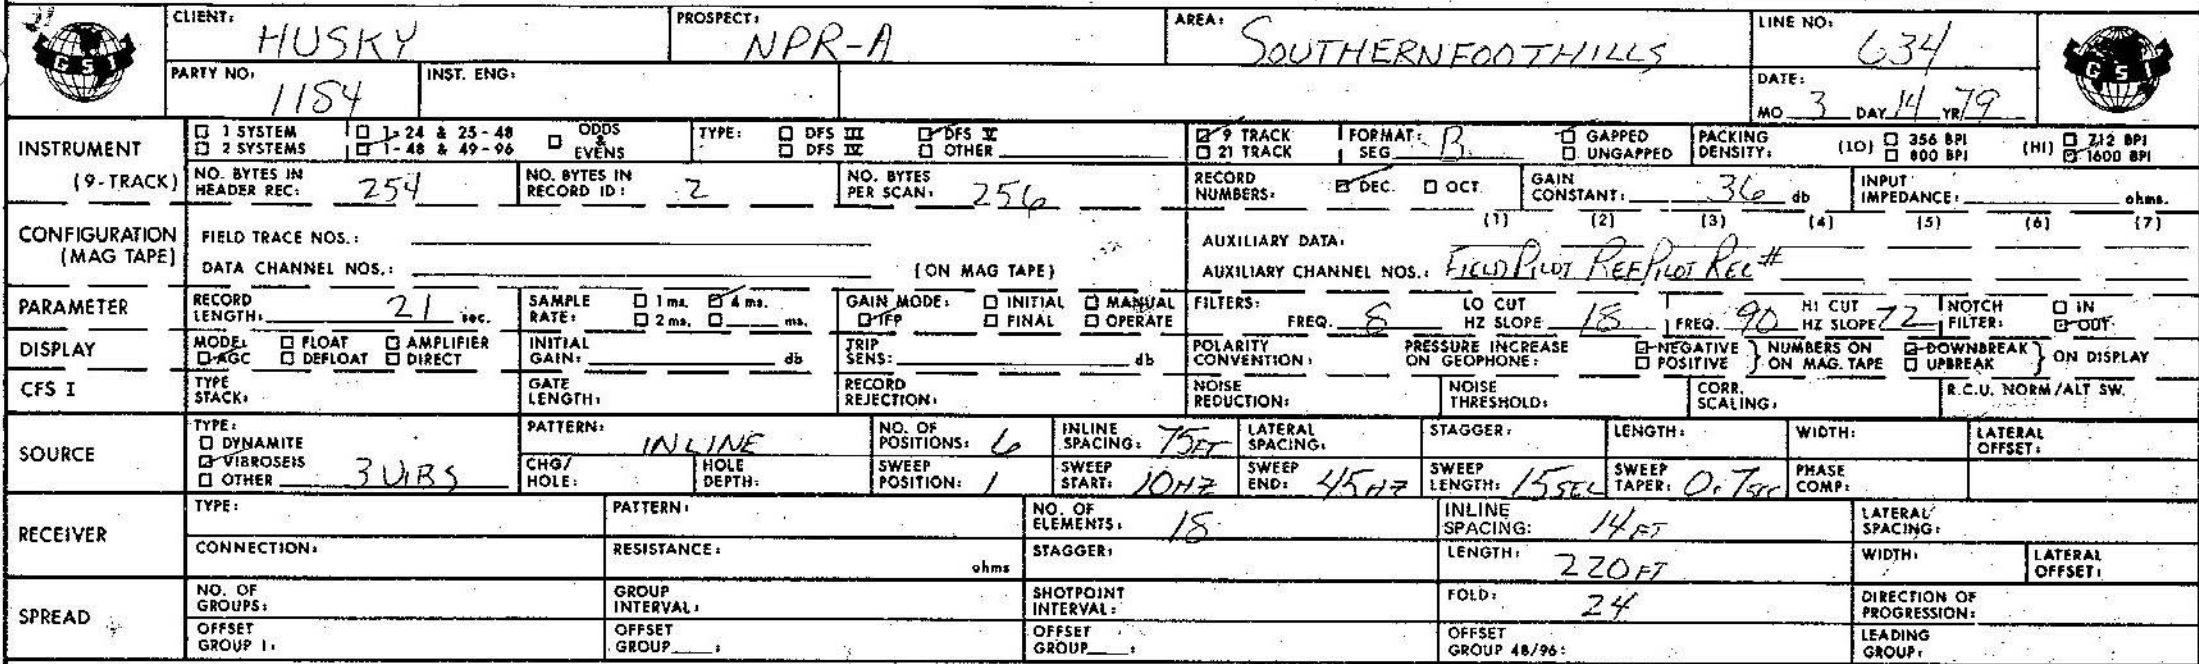 CLIENT: HUSKY PROSPECT: NPR-A AREA: SOUTHERN FOOTHILLS LINE NO: 634
GSI
PARTY NO: 1184 INST. ENG: DATE: MO 3 DAY 14 YR 79
GSI
INSTRUMENT (9-TRACK)
☐ 1 SYSTEM ☐ 1-24 & 25-48 ☐ ODDS & EVENS TYPE: ☐ DFS III ☑ DFS V ☑ 9 TRACK FORMAT: SEG B ☑ GAPPED PACKING DENSITY: (LO) ☐ 356 BPI (HI) ☐ 712 BPI
☐ 2 SYSTEMS ☑ 1-48 & 49-96 ☐ DFS IV ☐ OTHER ☐ 21 TRACK ☐ UNGAPPED ☐ 800 BPI ☑ 1600 BPI
NO. BYTES IN HEADER REC: 254 NO. BYTES IN RECORD ID: 2 NO. BYTES PER SCAN: 256 RECORD NUMBERS: ☑ DEC. ☐ OCT. GAIN CONSTANT: 36 db INPUT IMPEDANCE: ohms.
CONFIGURATION (MAG TAPE)
(1) (2) (3) (4) (5) (6) (7)
FIELD TRACE NOS.: AUXILIARY DATA:
DATA CHANNEL NOS.: (ON MAG TAPE) AUXILIARY CHANNEL NOS.: FIELD PILOT REF PILOT REC #
PARAMETER
RECORD LENGTH: 21 sec. SAMPLE RATE: ☐ 1 ms. ☑ 4 ms. ☐ 2 ms. ☐ ms. GAIN MODE: ☐ INITIAL ☐ MANUAL ☑ IFP ☐ FINAL ☐ OPERATE FILTERS: FREQ. 8 LO CUT HZ SLOPE 18 FREQ. 90 HI CUT HZ SLOPE 72 NOTCH FILTER: ☐ IN ☑ OUT
DISPLAY
MODEL ☐ FLOAT ☐ AMPLIFIER ☑ AGC ☐ DEFLOAT ☐ DIRECT INITIAL GAIN: db TRIP SENS: db POLARITY CONVENTION: PRESSURE INCREASE ON GEOPHONE: ☑ NEGATIVE ☐ POSITIVE } NUMBERS ON ON MAG. TAPE ☑ DOWNBREAK ☐ UPBREAK } ON DISPLAY
CFS I
TYPE STACK: GATE LENGTH: RECORD REJECTION: NOISE REDUCTION: NOISE THRESHOLD: CORR. SCALING: R.C.U. NORM/ALT SW.
SOURCE
TYPE: ☐ DYNAMITE ☑ VIBROSEIS ☐ OTHER 3 VIBS
PATTERN: INLINE NO. OF POSITIONS: 6 INLINE SPACING: 75FT LATERAL SPACING: STAGGER: LENGTH: WIDTH: LATERAL OFFSET:
CHG/HOLE: HOLE DEPTH: SWEEP POSITION: 1 SWEEP START: 10HZ SWEEP END: 45HZ SWEEP LENGTH: 15SEC SWEEP TAPER: 0.7sec PHASE COMP:
RECEIVER
TYPE: PATTERN: NO. OF ELEMENTS: 18 INLINE SPACING: 14 FT LATERAL SPACING:
CONNECTION: RESISTANCE: ohms STAGGER: LENGTH: 220 FT WIDTH: LATERAL OFFSET:
SPREAD
NO. OF GROUPS: GROUP INTERVAL: SHOTPOINT INTERVAL: FOLD: 24 DIRECTION OF PROGRESSION:
OFFSET GROUP 1: OFFSET GROUP : OFFSET GROUP : OFFSET GROUP 48/96: LEADING GROUP: